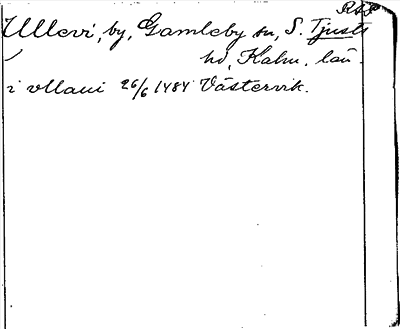 Ullevi, by, Gamleby sn, S. Tjusts
hd, Kalm. län.
i vllaui 26/6 1484 Västervik.